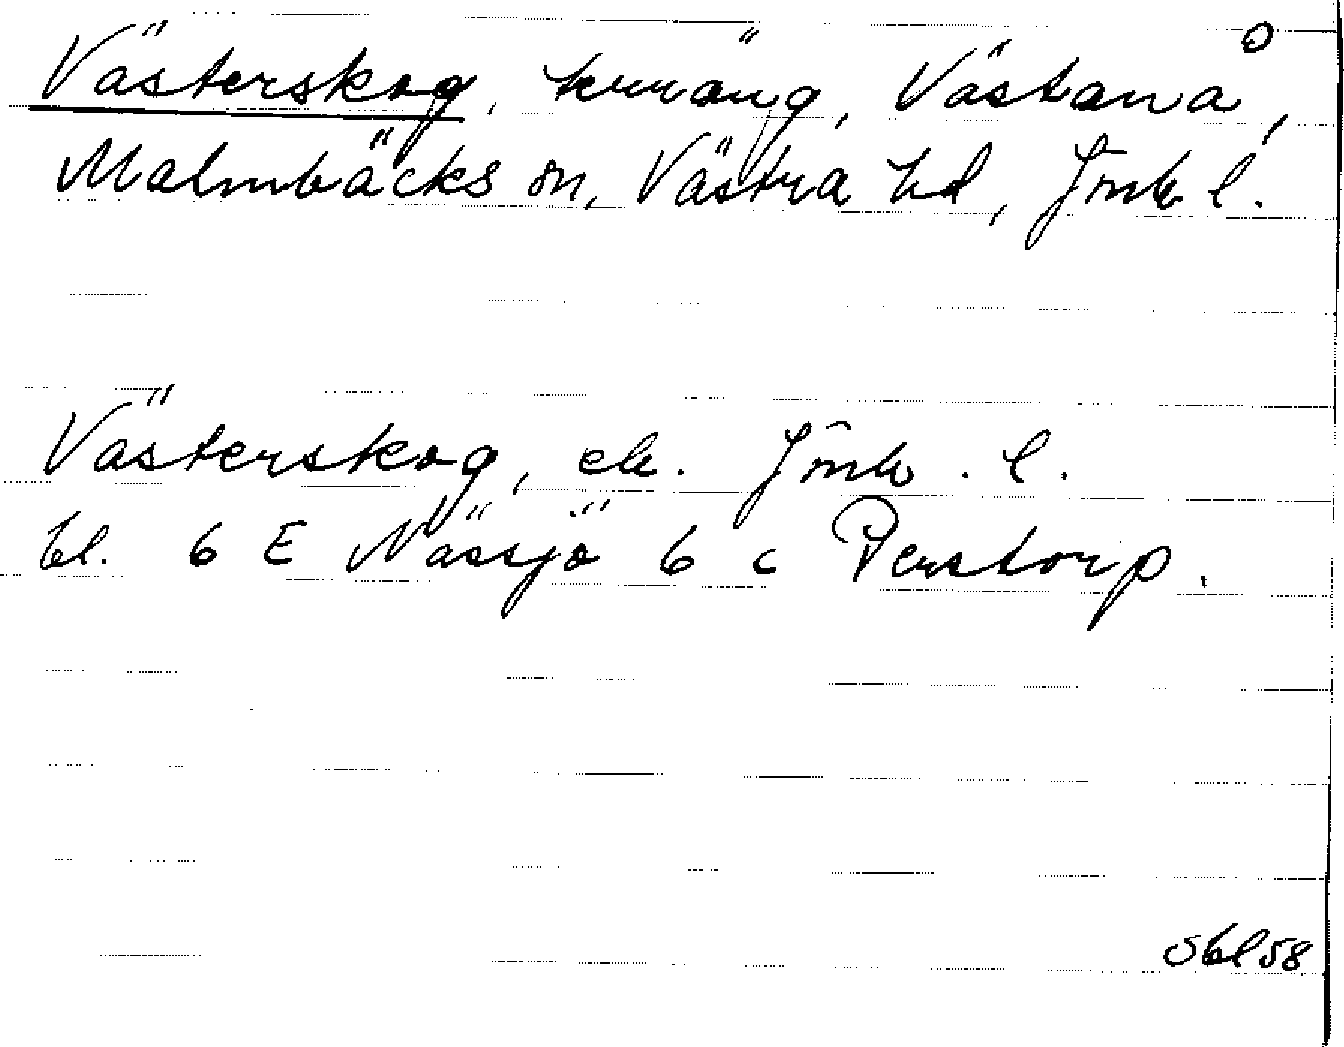 Västerskog, terräng, Västanå,
Malmbäcks sn, Västra hd, Jönk l.
Västerskog, ek. Jönk. l.
bl. 6 E Nässjö 6 c Perstorp.
Sbl 58